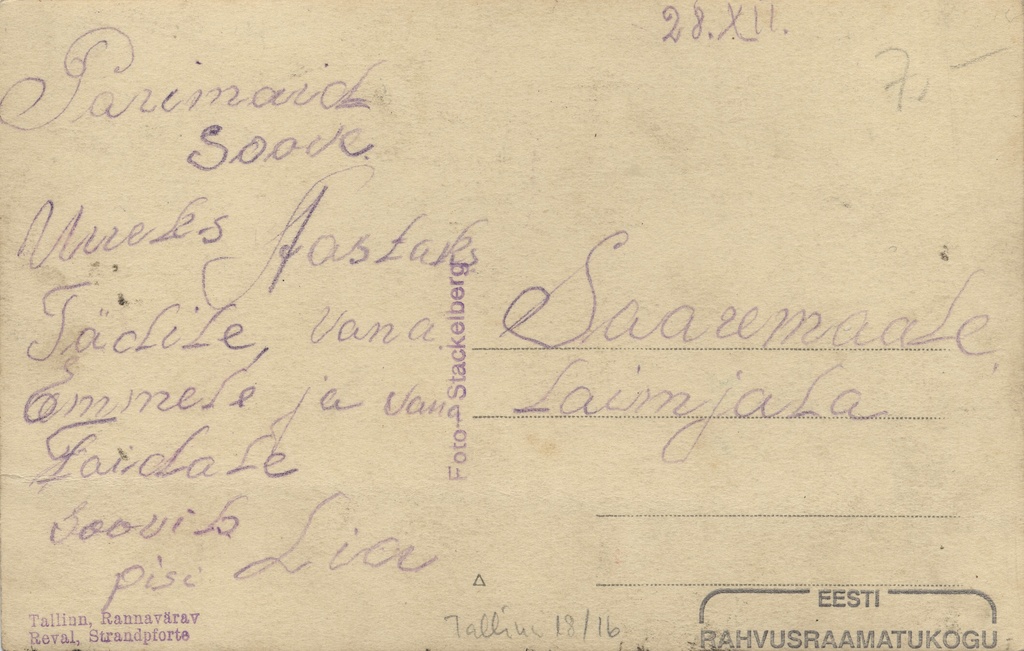 28.XII.
7,-
Parimaid
soove
Uueks Aastaks
Tädile, vana
Emmele ja vana
Taadale
soovib
pisi Lia
Foto-Stackelberg
Saaremaale,
Laimjala
Tallinn, Rannavärav
Reval, Strandpforte
Tallinn 18/16
EESTI
RAHVUSRAAMATUKOGU